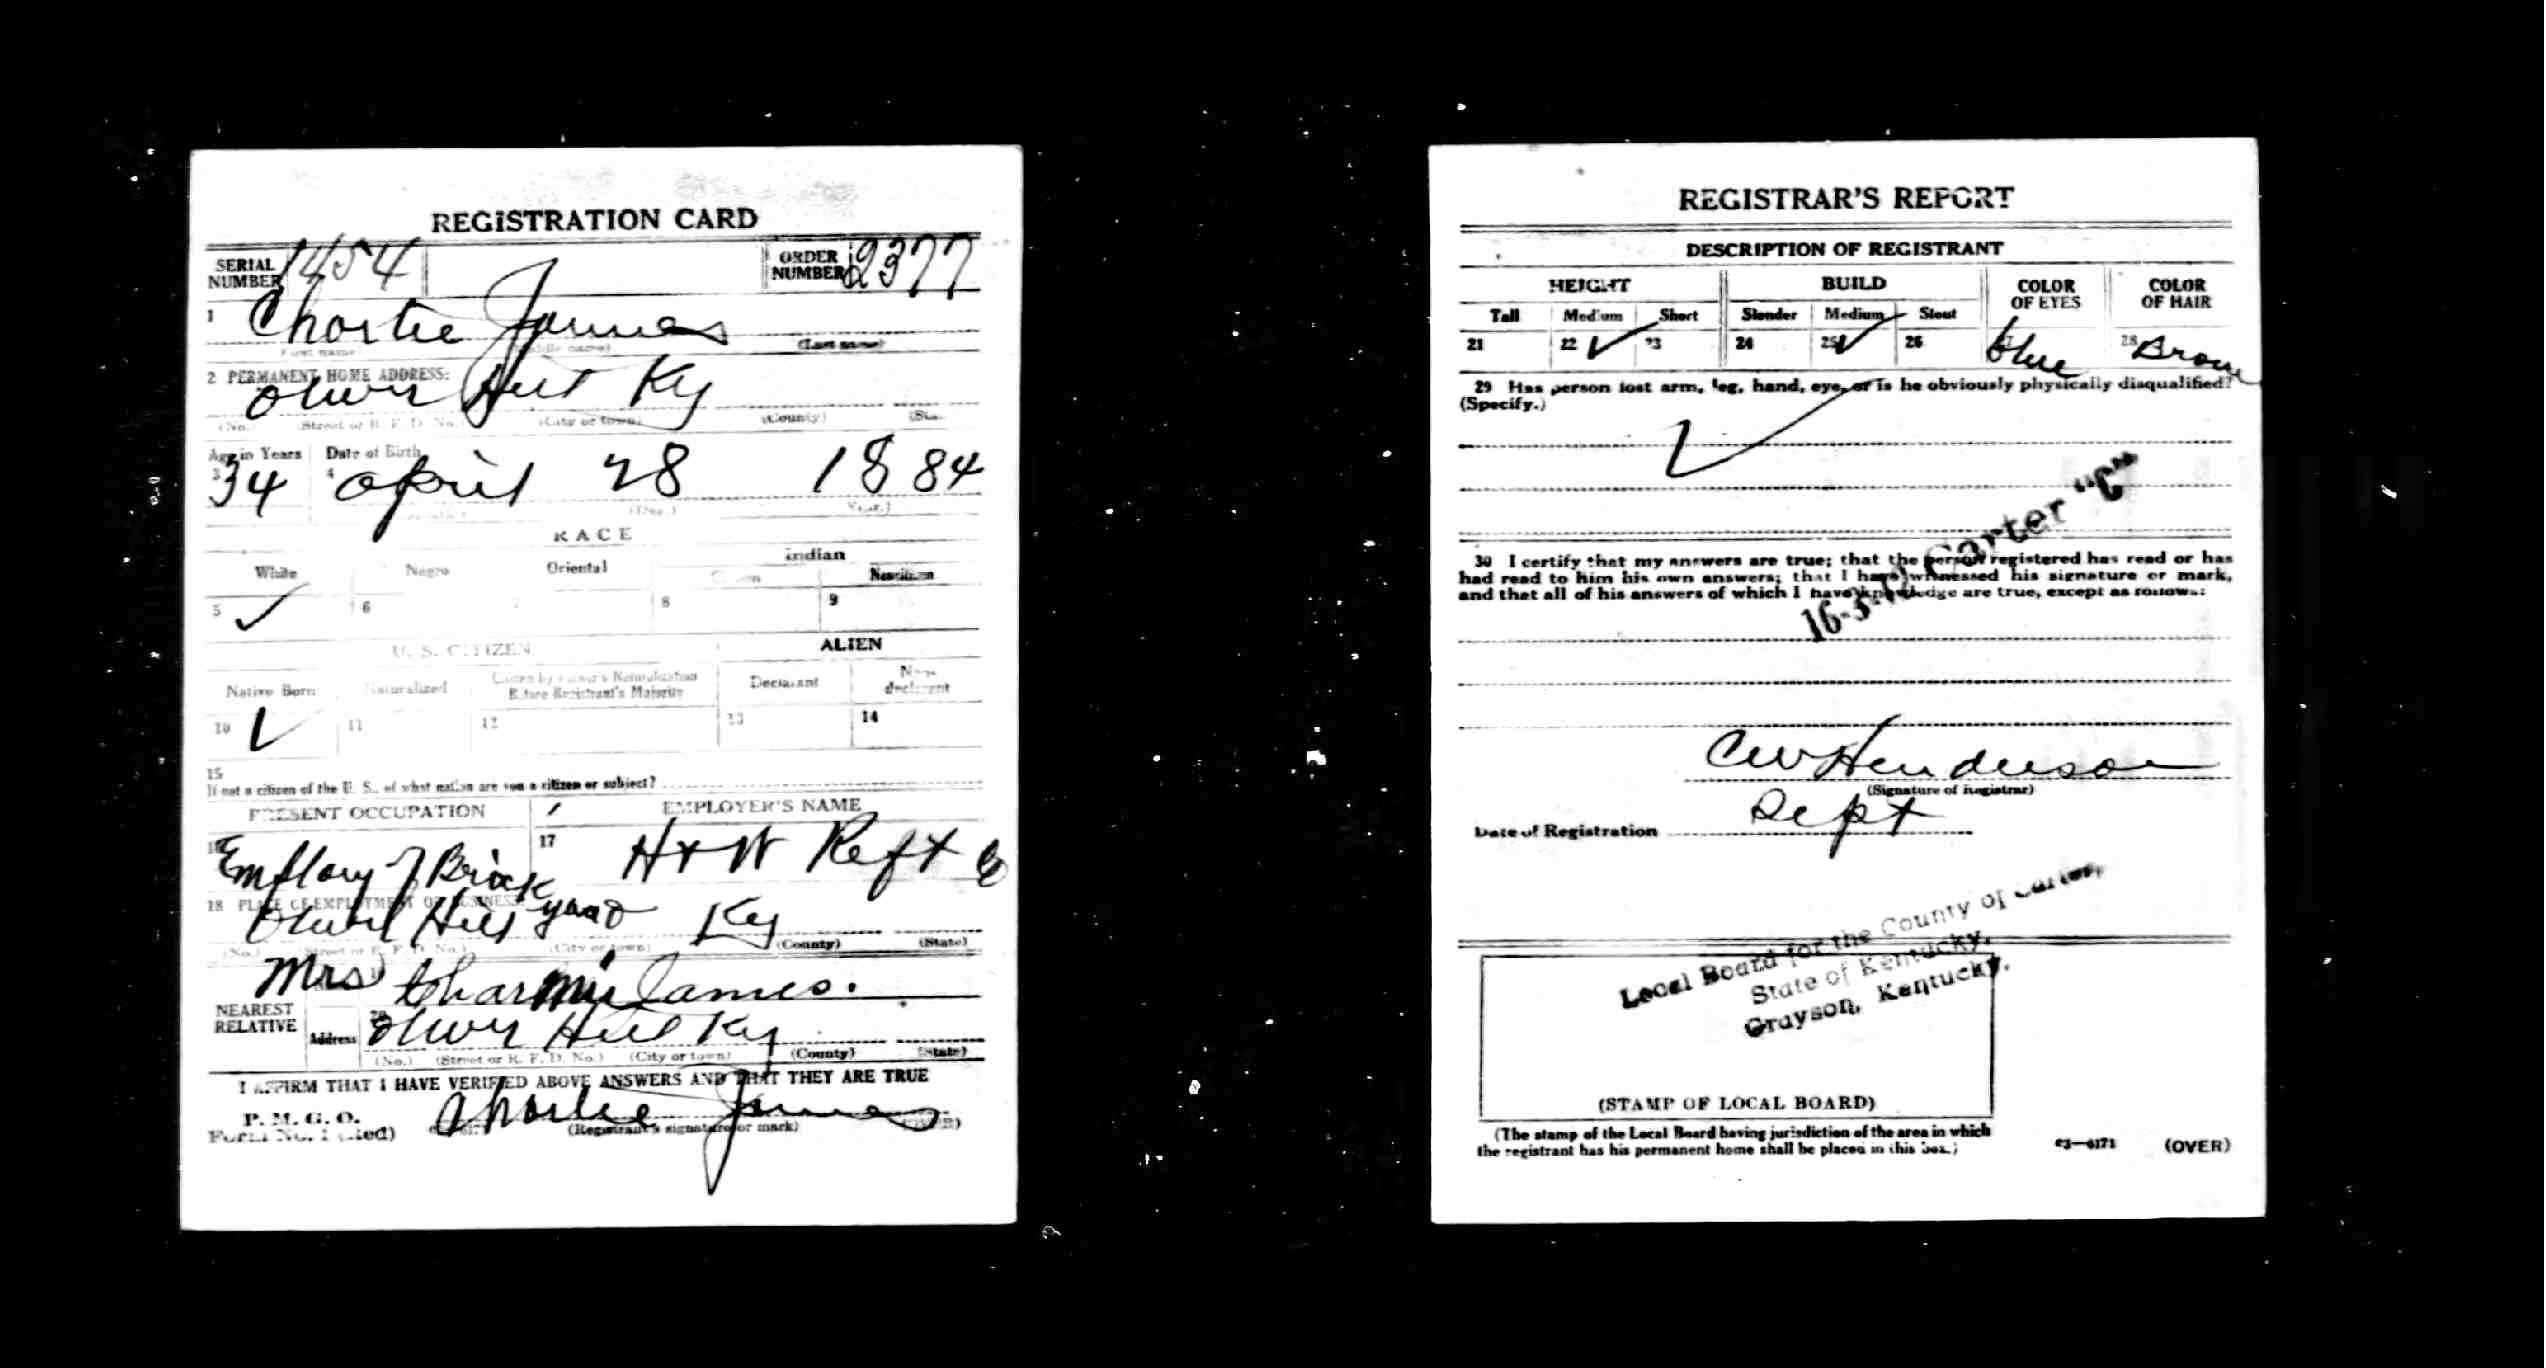 REGISTRATION CARD
SERIAL NUMBER 1454 ORDER NUMBER 2377
1 Charlie James
(First name) (Middle name) (Last name)
2 PERMANENT HOME ADDRESS:
Oliver Hill Ky
(No.) (Street or R. F. D. No.) (City or town) (County) (State)
Age in Years Date of Birth
3 34 4 April 28 1884
(Day.) (Year.)
RACE
White Negro Oriental Indian
Citizen Noncitizen
5 ✓ 6 7 8 9
U. S. CITIZEN ALIEN
Native Born Naturalized Citizen by Father's Naturalization Before Registrant's Majority Declarant Non-declarant
10 ✓ 11 12 13 14
15
If not a citizen of the U. S., of what nation are you a citizen or subject?
PRESENT OCCUPATION EMPLOYER'S NAME
16 Brick yard 17 H + W Reft Co
18 PLACE OF EMPLOYMENT OR BUSINESS:
Hill Ky
(No.) (Street or R. F. D. No.) (City or town) (County) (State)
Mrs James.
NEAREST RELATIVE Address 20 Oliver Hill Ky
(No.) (Street or R. F. D. No.) (City or town) (County) (State)
I AFFIRM THAT I HAVE VERIFIED ABOVE ANSWERS AND THAT THEY ARE TRUE
P. M. G. O.
Form No. 1 (Red) Charlie James
(Registrant's signature or mark) (OVER)
REGISTRAR'S REPORT
DESCRIPTION OF REGISTRANT
HEIGHT BUILD COLOR OF EYES COLOR OF HAIR
Tall Medium Short Slender Medium Stout
21 22 ✓ 23 24 25 ✓ 26 blue 28 Brown
29 Has person lost arm, leg, hand, eye, or is he obviously physically disqualified?
(Specify.)
✓
16-3-12 Carter "C"
30 I certify that my answers are true; that the person registered has read or has
had read to him his own answers; that I have witnessed his signature or mark,
and that all of his answers of which I have knowledge are true, except as follows:
C W Henderson
(Signature of Registrar)
Date of Registration Sept
Local Board for the County of Carter,
State of Kentucky,
Grayson, Kentucky.
(STAMP OF LOCAL BOARD)
(The stamp of the Local Board having jurisdiction of the area in which
the registrant has his permanent home shall be placed in this box.)
03—6171 (OVER)